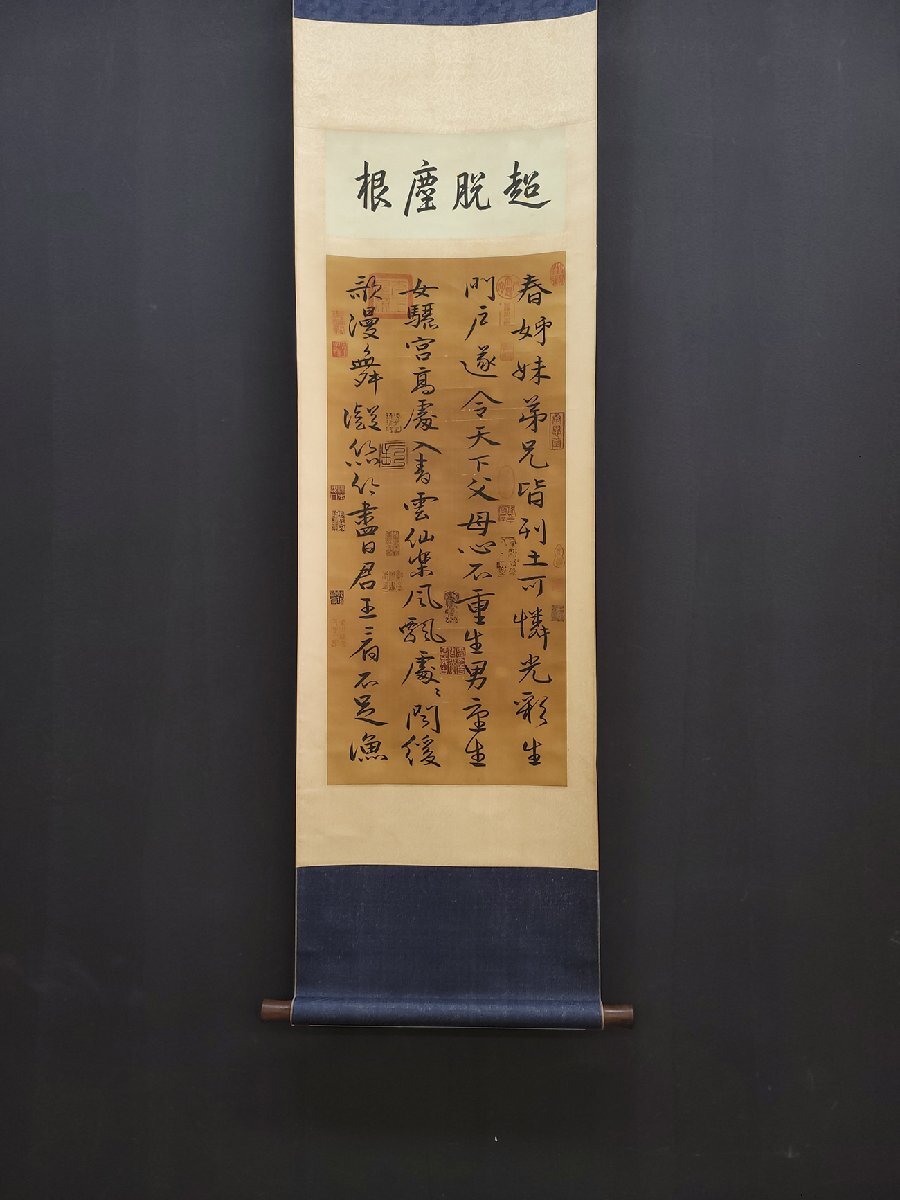 超脱塵根
春姊妹弟兄皆列土可憐光彩生
門戶遂令天下父母心不重生男重生
女驪宮高處入青雲仙樂風飄處〻聞緩
歌漫舞凝絲竹盡日君王看不足漁